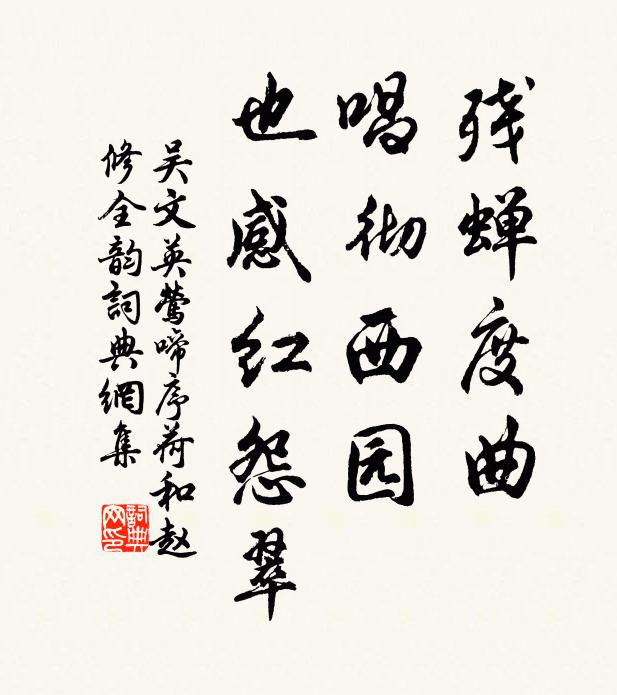 残蝉度曲
唱彻西园
也感红怨翠
吴文英莺啼序荷和赵
修全韵詞典網集
詞典网印